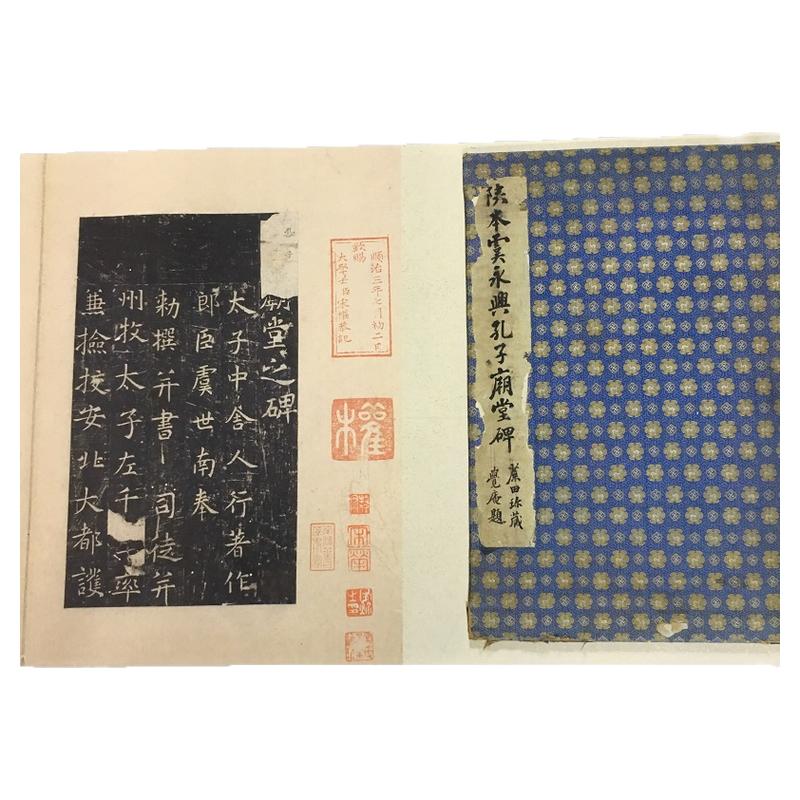 陝本虞永興孔子廟堂碑
田珍藏
覺庵題
順治三年七月初二日
欽賜
大學士臣宋權恭記
權
廟堂之碑
太子中舍人行著作
郎臣虞世南奉
勑撰并書 司徒并
州牧太子左千率
兼撿挍安北大都護